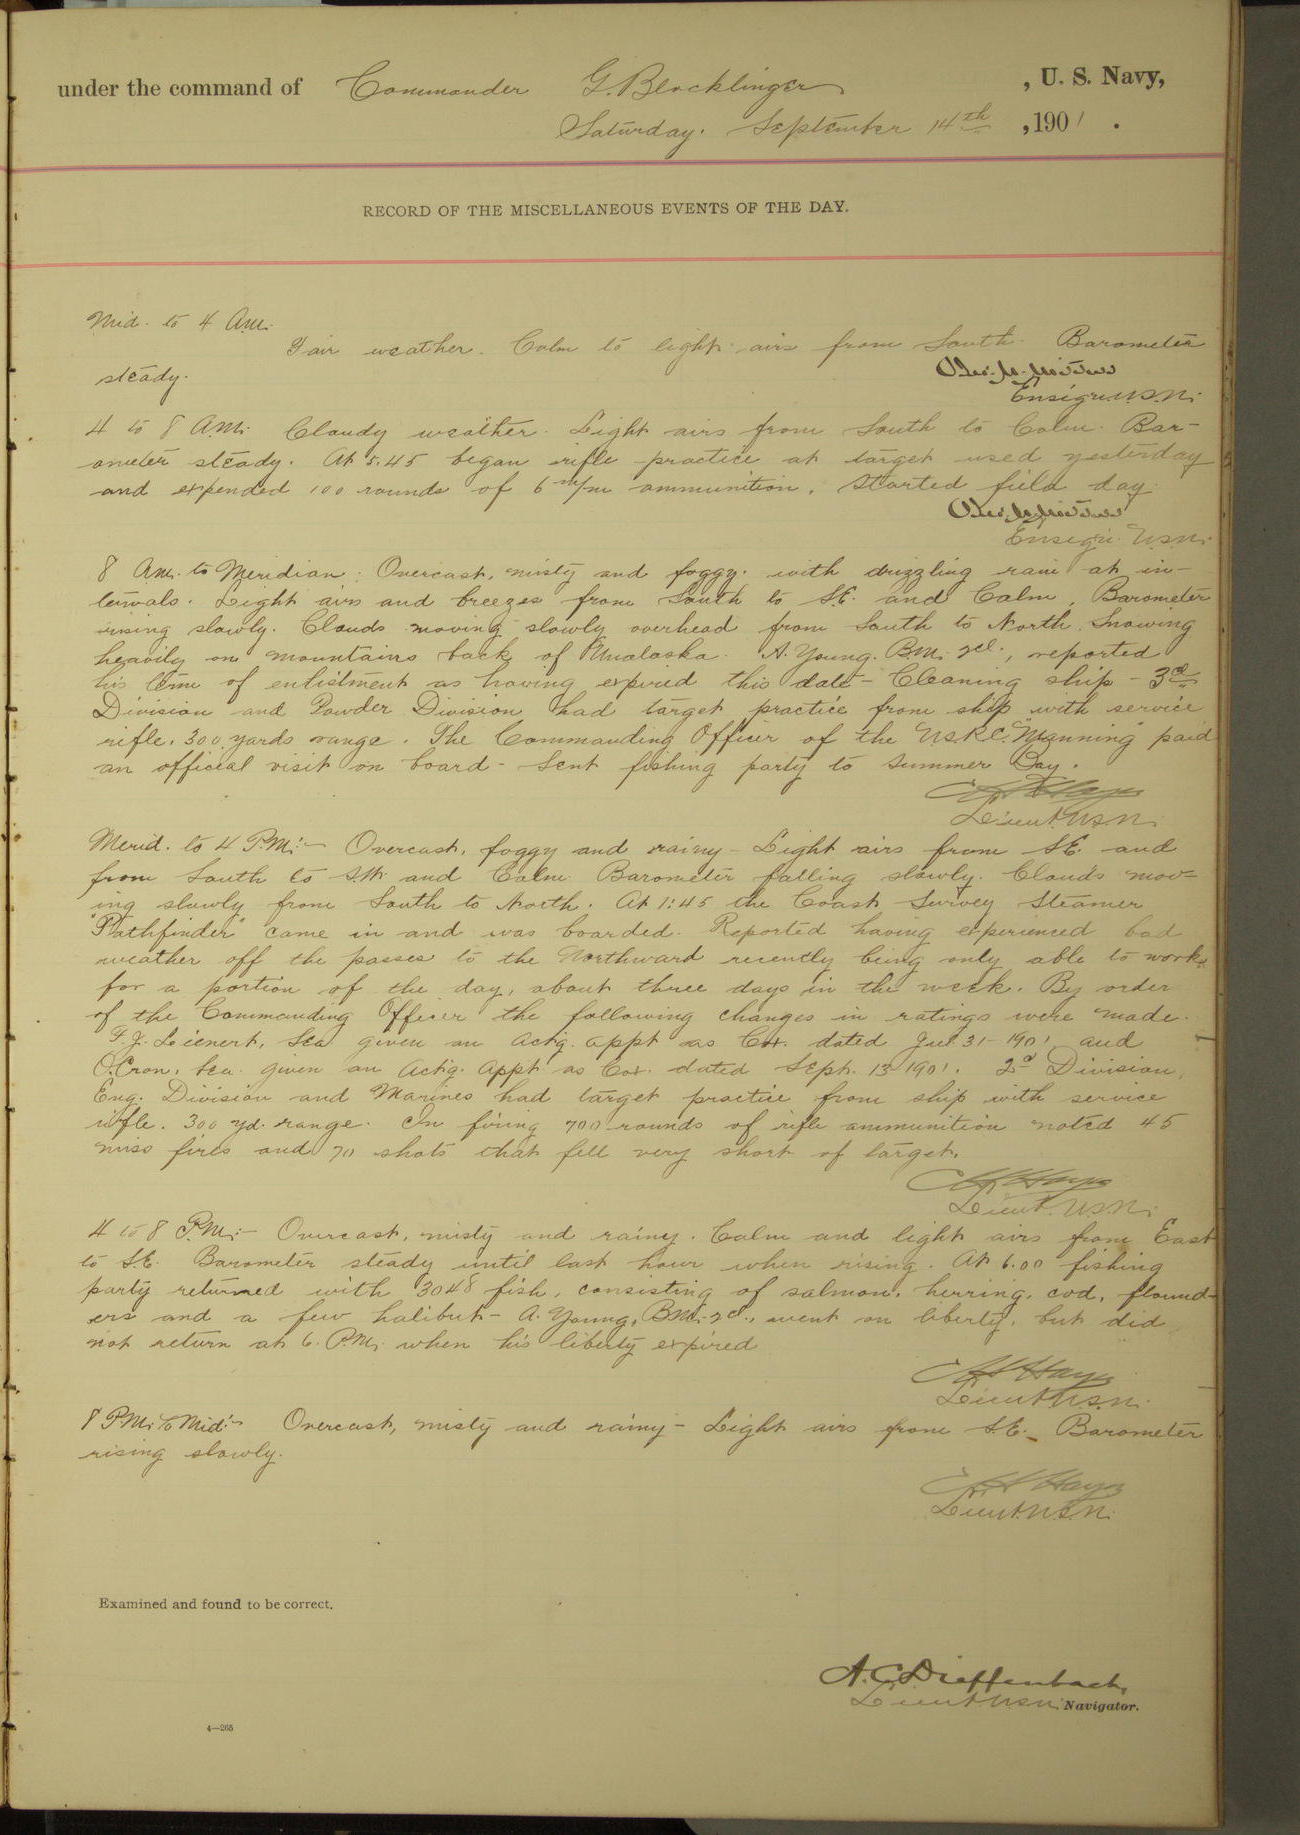 under the command of Commander G. Blocklinger , U. S. Navy,
Saturday. September 14th , 1901 .
RECORD OF THE MISCELLANEOUS EVENTS OF THE DAY.
Mid. to 4 A.M.
Fair weather. Calm to light airs from South. Barometer
steady.
Ensign U.S.N.
4 to 8 A.M. Cloudy weather. Light airs from South to Calm. Bar-
ometer steady. At 5.45 began rifle practice at target used yesterday
and expended 100 rounds of 6 m/m ammunition. Started field day.
Ensign U.S.N.
8 A.M. to Meridian: Overcast, misty and foggy. with drizzling rain at in-
tervals. Light airs and breezes from South to S.E. and Calm. Barometer
rising slowly. Clouds moving slowly overhead from South to North. Snowing
heavily on mountains back of Unalaska. A. Young. B.M. 2cl., reported
his time of enlistment as having expired this date - Cleaning ship - 3rd
Division and Powder Division had target practice from ship with service
rifle. 300 yards range. The Commanding Officer of the U.S.R.C. "Manning" paid
an official visit on board - Sent fishing party to Summer Bay.
Lieut. U.S.N.
Merid. to 4 P.M.:- Overcast, foggy and rainy - Light airs from S.E. and
from South to S.W. and Calm. Barometer falling slowly. Clouds mov=
ing slowly from South to North. At 1:45 the Coast Survey Steamer
"Pathfinder" came in and was boarded. Reported having experienced bad
weather off the passes to the Northward recently being only able to work
for a portion of the day, about three days in the week. By order
of the Commanding Officer the following changes in ratings were made.
F.J. Lienert, Sea. given an Actg. appt as Cox. dated 31-1901 and
O. Cron, Sea. given an Actg. Appt as Cox. dated Sept. 13-1901. 2d Division,
Eng. Division and Marines had target practice from ship with service
rifle. 300 yd. range. In firing 700 rounds of rifle ammunition noted 45
miss fires and 70 shots that fell very short of target.
Lieut. U.S.N.
4 to 8 P.M.:- Overcast, misty and rainy. Calm and light airs from East
to S.E. Barometer steady until last hour when rising. At 6.00 fishing
party returned with 3048 fish, consisting of salmon, herring, cod, flound-
ers and a few halibut - A. Young, B.M. 2cl., went on liberty, but did
not return at 6. P.M. when his liberty expired
Lieut. U.S.N.
8 P.M. to Mid:- Overcast, misty and rainy - Light airs from S.E. - Barometer
rising slowly.
Lieut. U.S.N.
Examined and found to be correct.
A. C. Dieffenbach,
Lieut. U.S.N. Navigator.
4—265